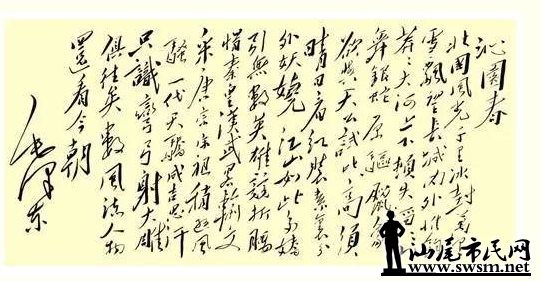 沁園春
北國風光千里冰封萬里
雪飄望長城内外惟餘
莽〻大河上下頓失滔〻山
舞銀蛇原驅臘象
欲與天公試比高須
晴日看紅裝素裹分
外妖嬈 江山如此多嬌
引無數英雄競折腰
惜秦皇漢武略輸文
采唐宗宋祖稍遜風
騷一代天驕成吉思汗
只識彎弓射大雕
俱往矣數風流人物
還看今朝
毛澤東
汕尾市民网
www.swsm.net